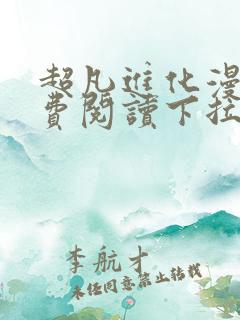 超凡进化漫
费阅读下拉
李航才
未经同意禁止转载